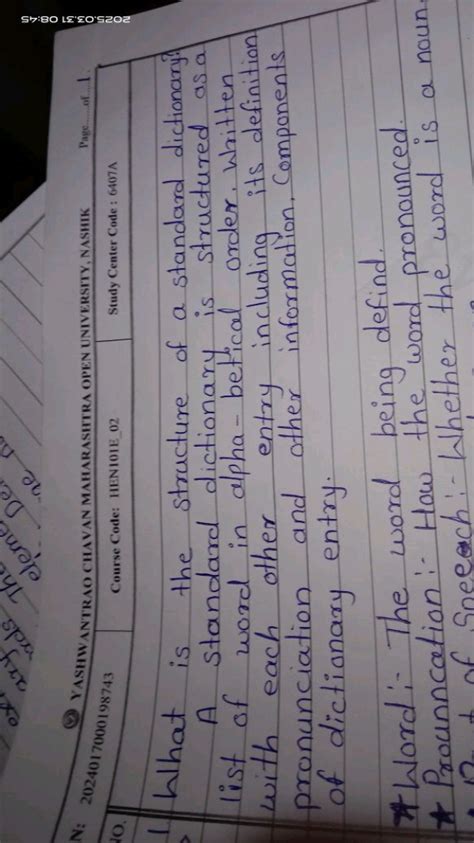 2025.03.31 08:45
YASHWANTRAO CHAVAN MAHARASHTRA OPEN UNIVERSITY, NASHIK
Page......of.....1.
N: 2024017000198743
Course Code: HEN101E_02
Study Center Code : 6407A
NO.
1. What is the structure of a standard dictionary?
A standard dictionary is structured as a
list of word in alpha-betical order. Written
with each other entry including its definition
pronunciation and other information, Components
of dictionary entry.
* Word :- The word being defind.
* Prounncation :- How the word pronounced.
of Speech :- Whether the word is a noun,